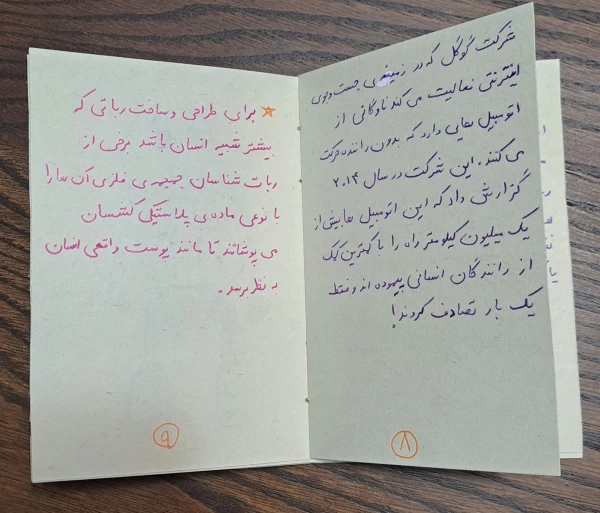 شرکت گوگل که در زمینه ی جست وجوی
اینترنتی فعالیت می کند ناوگانی از
اتومبیل هایی دارد که بدون راننده حرکت
می کنند. این شرکت در سال ۲۰۱۴
گزارش داد که این اتومبیل ها بیش از
یک میلیون کیلومتر راه را با کمترین کمک
از رانندگان انسانی پیموده اند و فقط
یک بار تصادف کردند!
۸
برای طراحی و ساخت رباتی که
بیشتر شبیه انسان باشد برخی از
ربات شناسان جمجمه ی فلزی آن ها را
با نوعی ماده ی پلاستیکی کشسان
می پوشانند تا مانند پوست واقعی انسان
به نظر برسد.
۹